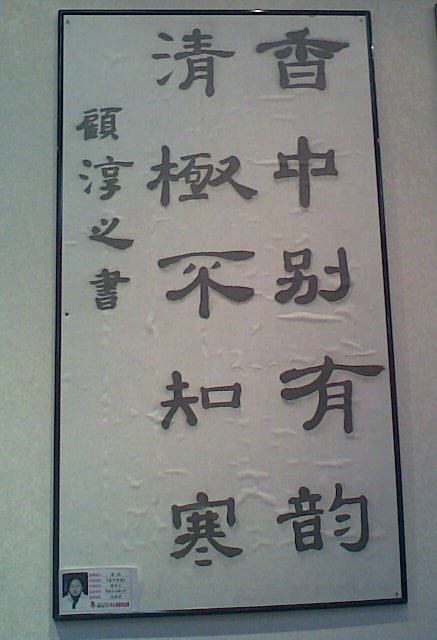 香中别有韵
清極不知寒
顧淳之書